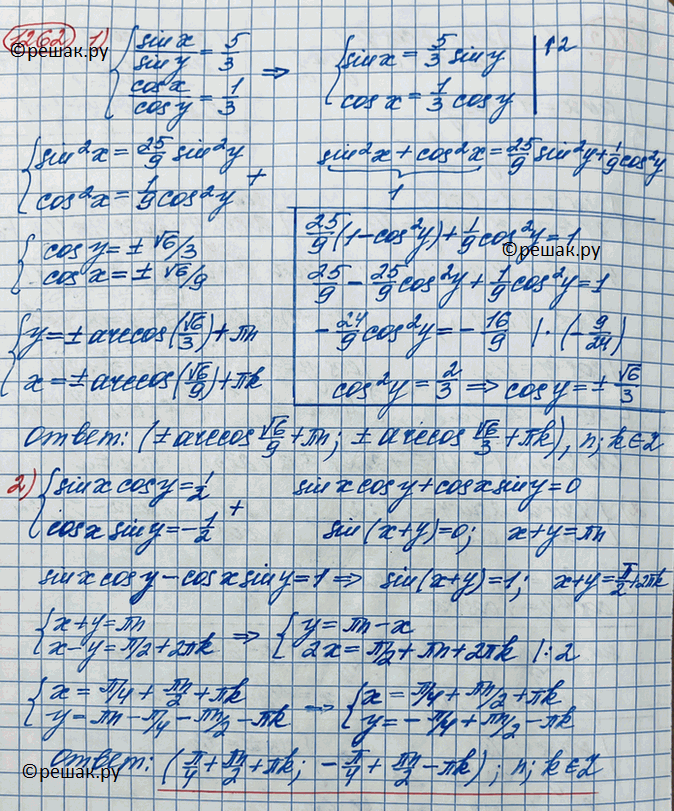 1262 1) { sin x / sin y = 5/3 ; cos x / cos y = 1/3 ⇒ { sin x = 5/3 sin y ; cos x = 1/3 cos y | ↑2
©решак.ру
{ sin²x = 25/9 sin²y ; cos²x = 1/9 cos²y +
sin²x + cos²x = 25/9 sin²y + 1/9 cos²y
1
{ cos y = ± √6/3 ; cos x = ± √6/9
25/9 (1 - cos²y) + 1/9 cos²y = 1
©решак.ру
25/9 - 25/9 cos²y + 1/9 cos²y = 1
{ y = ± arccos(√6/3) + πn ; x = ± arccos(√6/9) + πk
- 24/9 cos²y = - 16/9 | · (- 9/24)
cos²y = 2/3 ⇒ cos y = ± √6/3
ответ: (± arccos √6/9 + πn; ± arccos √6/3 + πk), n; k ∈ Z
2) { sin x cos y = 1/2 ; cos x sin y = - 1/2 +
sin x cos y + cos x sin y = 0
sin (x+y) = 0; x + y = πn
sin x cos y - cos x sin y = 1 ⇒ sin (x+y) = 1; x + y = π/2 + 2πk
{ x + y = πn ; x - y = π/2 + 2πk ⇒ { y = πn - x ; 2x = π/2 + πn + 2πk | : 2
{ x = π/4 + πn/2 + πk ; y = πn - π/4 - πn/2 - πk → { x = π/4 + πn/2 + πk ; y = - π/4 + πn/2 - πk
ответ: (π/4 + πn/2 + πk; - π/4 + πn/2 - πk); n; k ∈ Z
©решак.ру